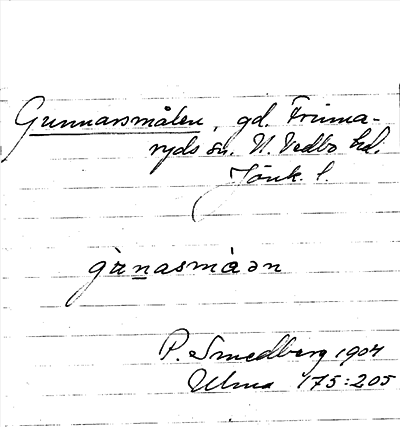 Gunnarsmålen, gd. Frinna-
ryds sn. N. Vedbo hd.
Jönk. l.
gùnasmàən
P. Smedberg 1904
Ulma 175:205